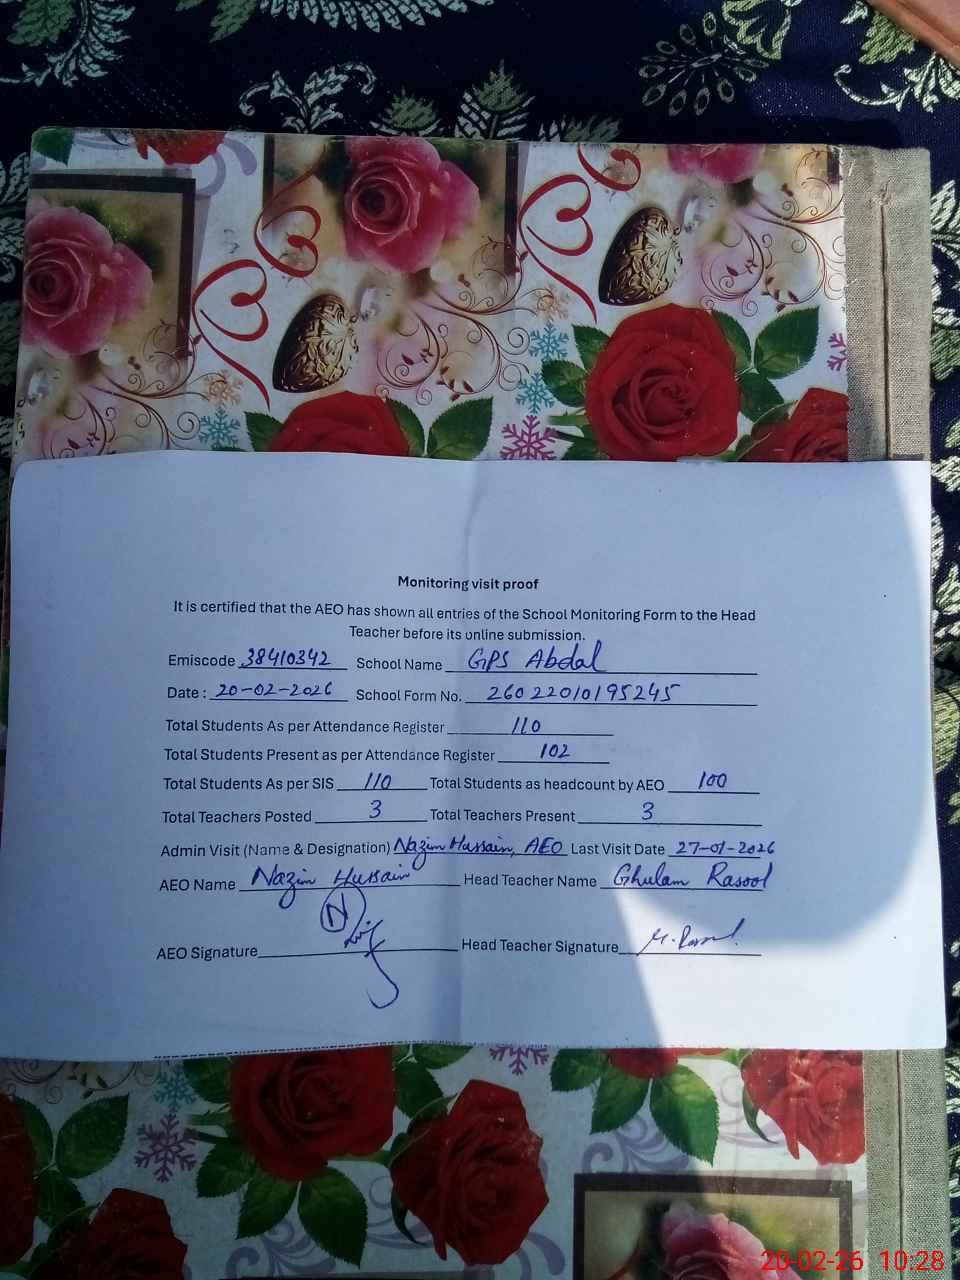 Monitoring visit proof
It is certified that the AEO has shown all entries of the School Monitoring Form to the Head
Teacher before its online submission.
Emiscode 38410342 School Name GPS Abdal
Date : 20-02-2026 School Form No. 26022010195245
Total Students As per Attendance Register 110
Total Students Present as per Attendance Register 102
Total Students As per SIS 110 Total Students as headcount by AEO 100
Total Teachers Posted 3 Total Teachers Present 3
Admin Visit (Name & Designation) Nazim Hussain, AEO Last Visit Date 27-01-2026
AEO Name Nazim Hussain Head Teacher Name Ghulam Rasool
AEO Signature Head Teacher Signature
20-02-26 10:28